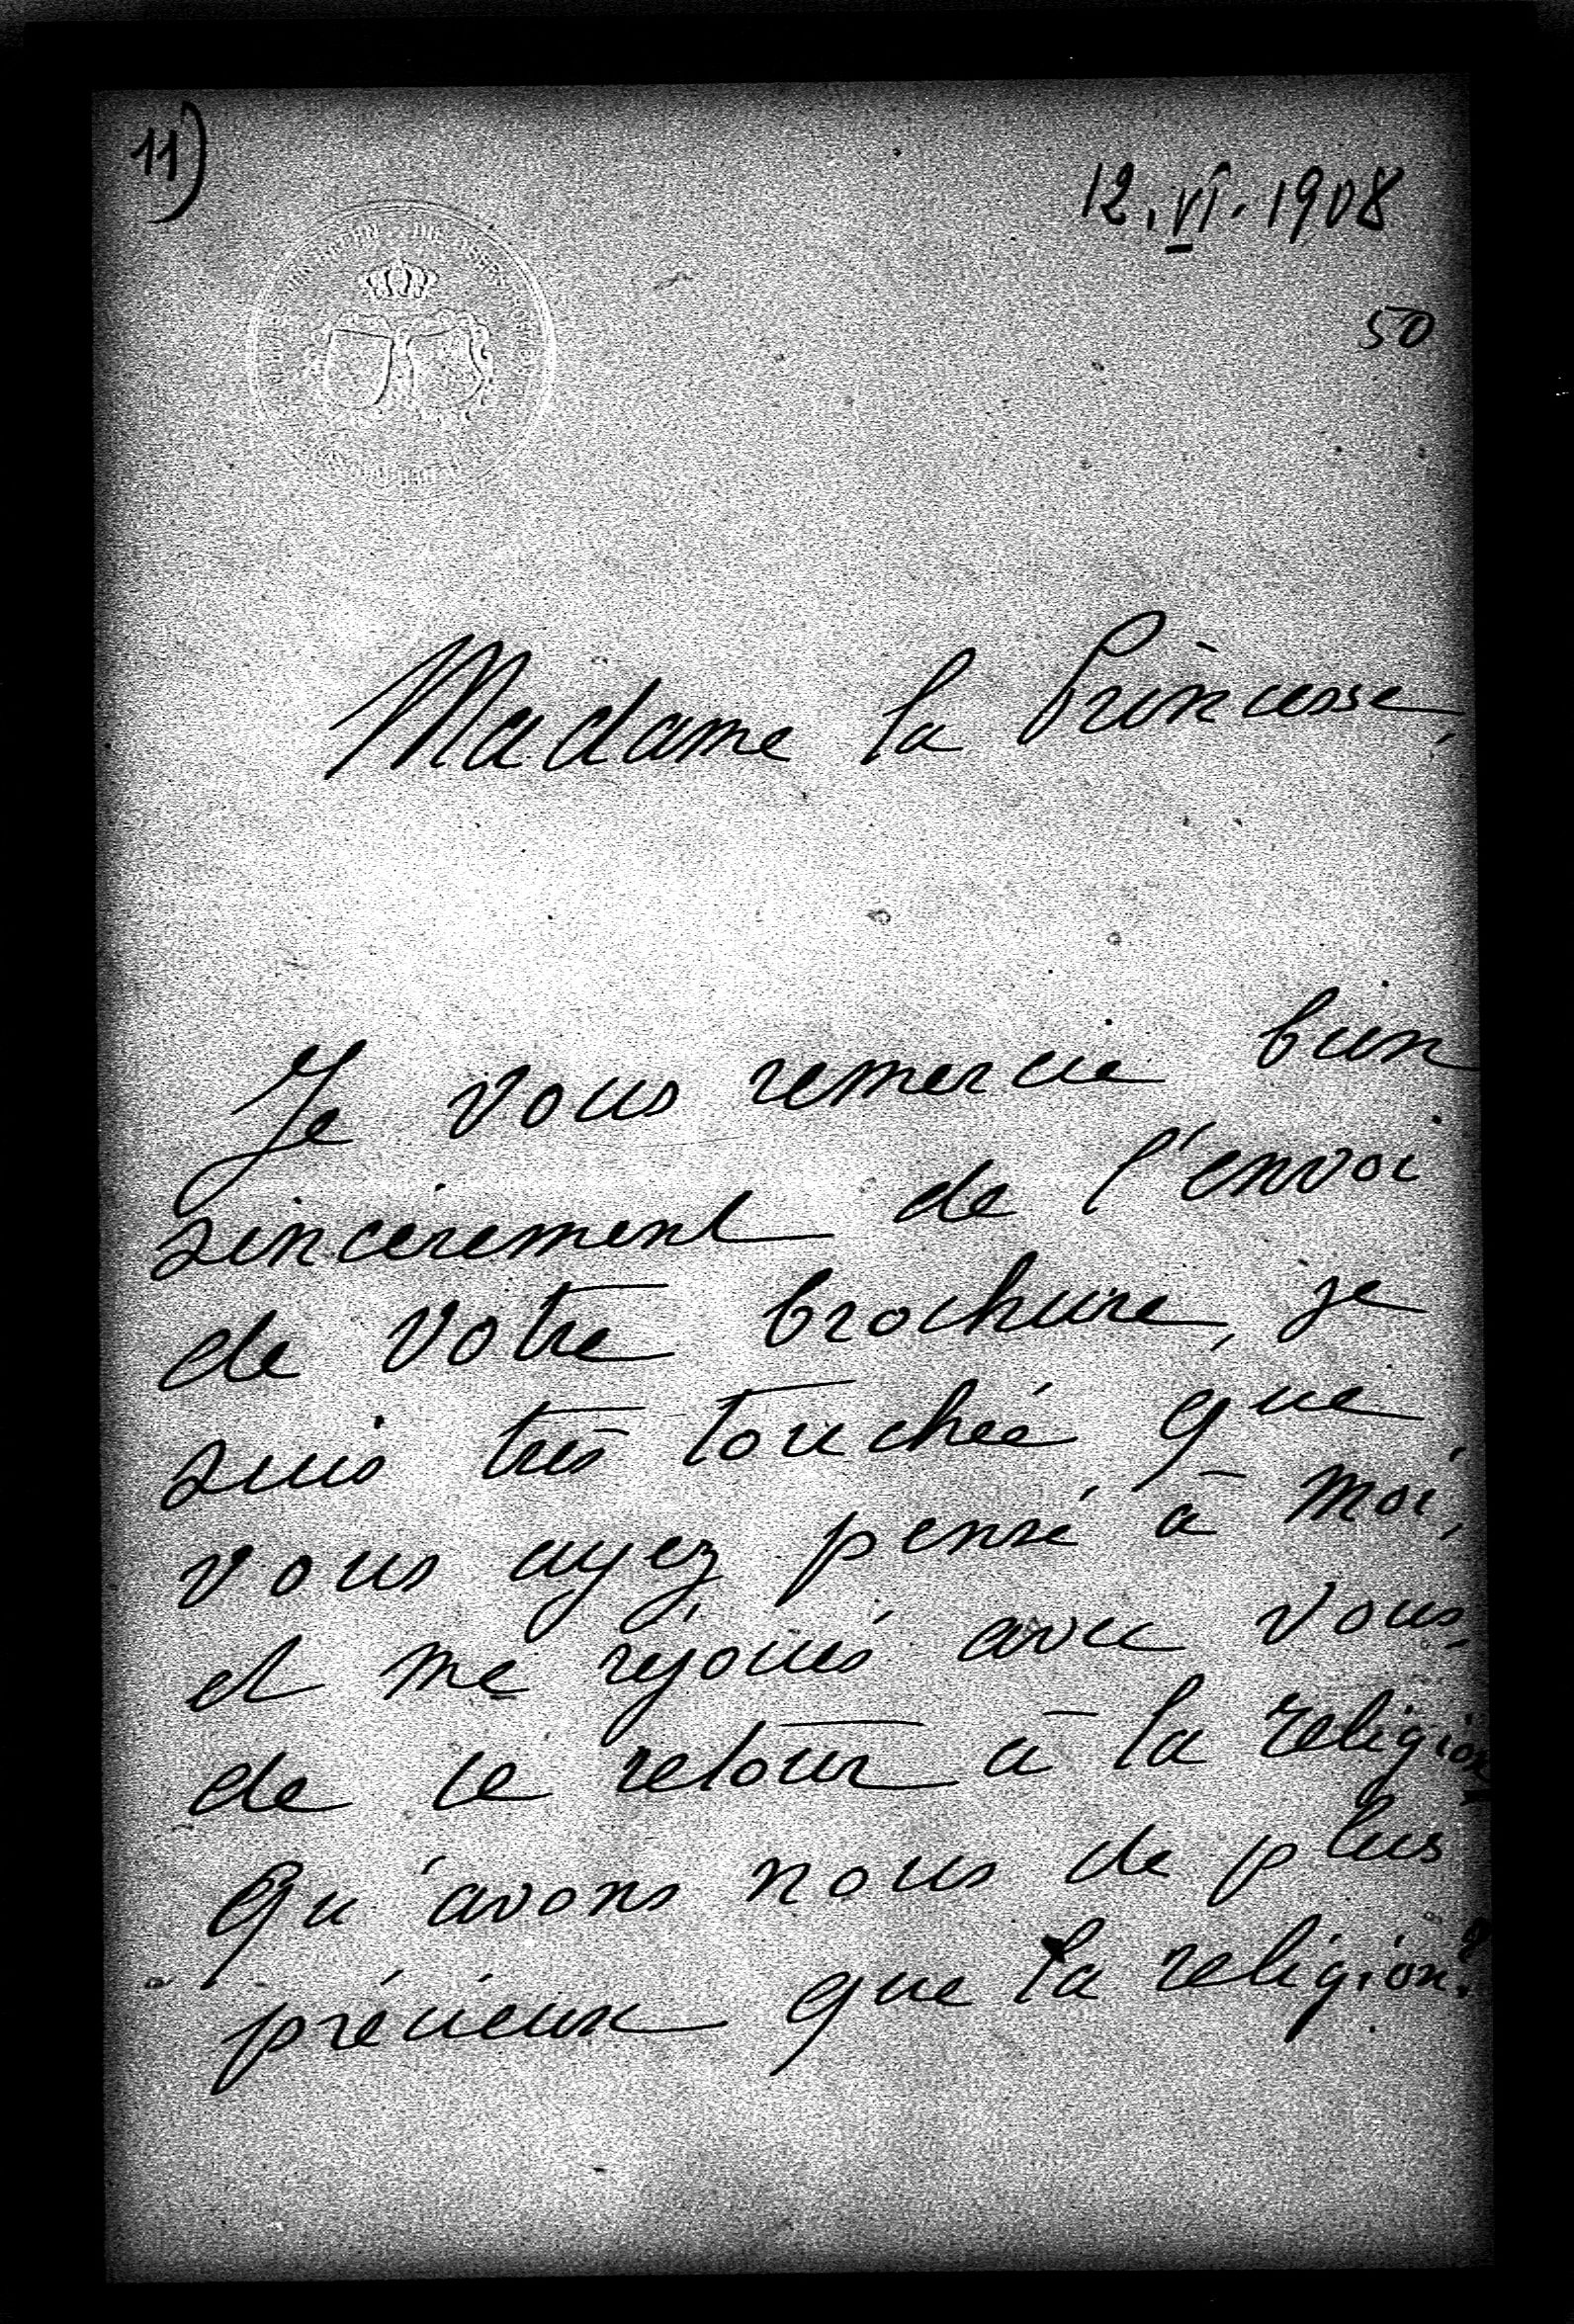 11)
12.VI.1908
50
Madame la Princesse,
Je vous remercie bien
sincèrement de l'envoi
de votre brochure, je
suis très touchée que
vous ayez pensé à moi,
et me réjouis avec vous
de ce retour à la religion
Qu'avons nous de plus
précieux que la religion?